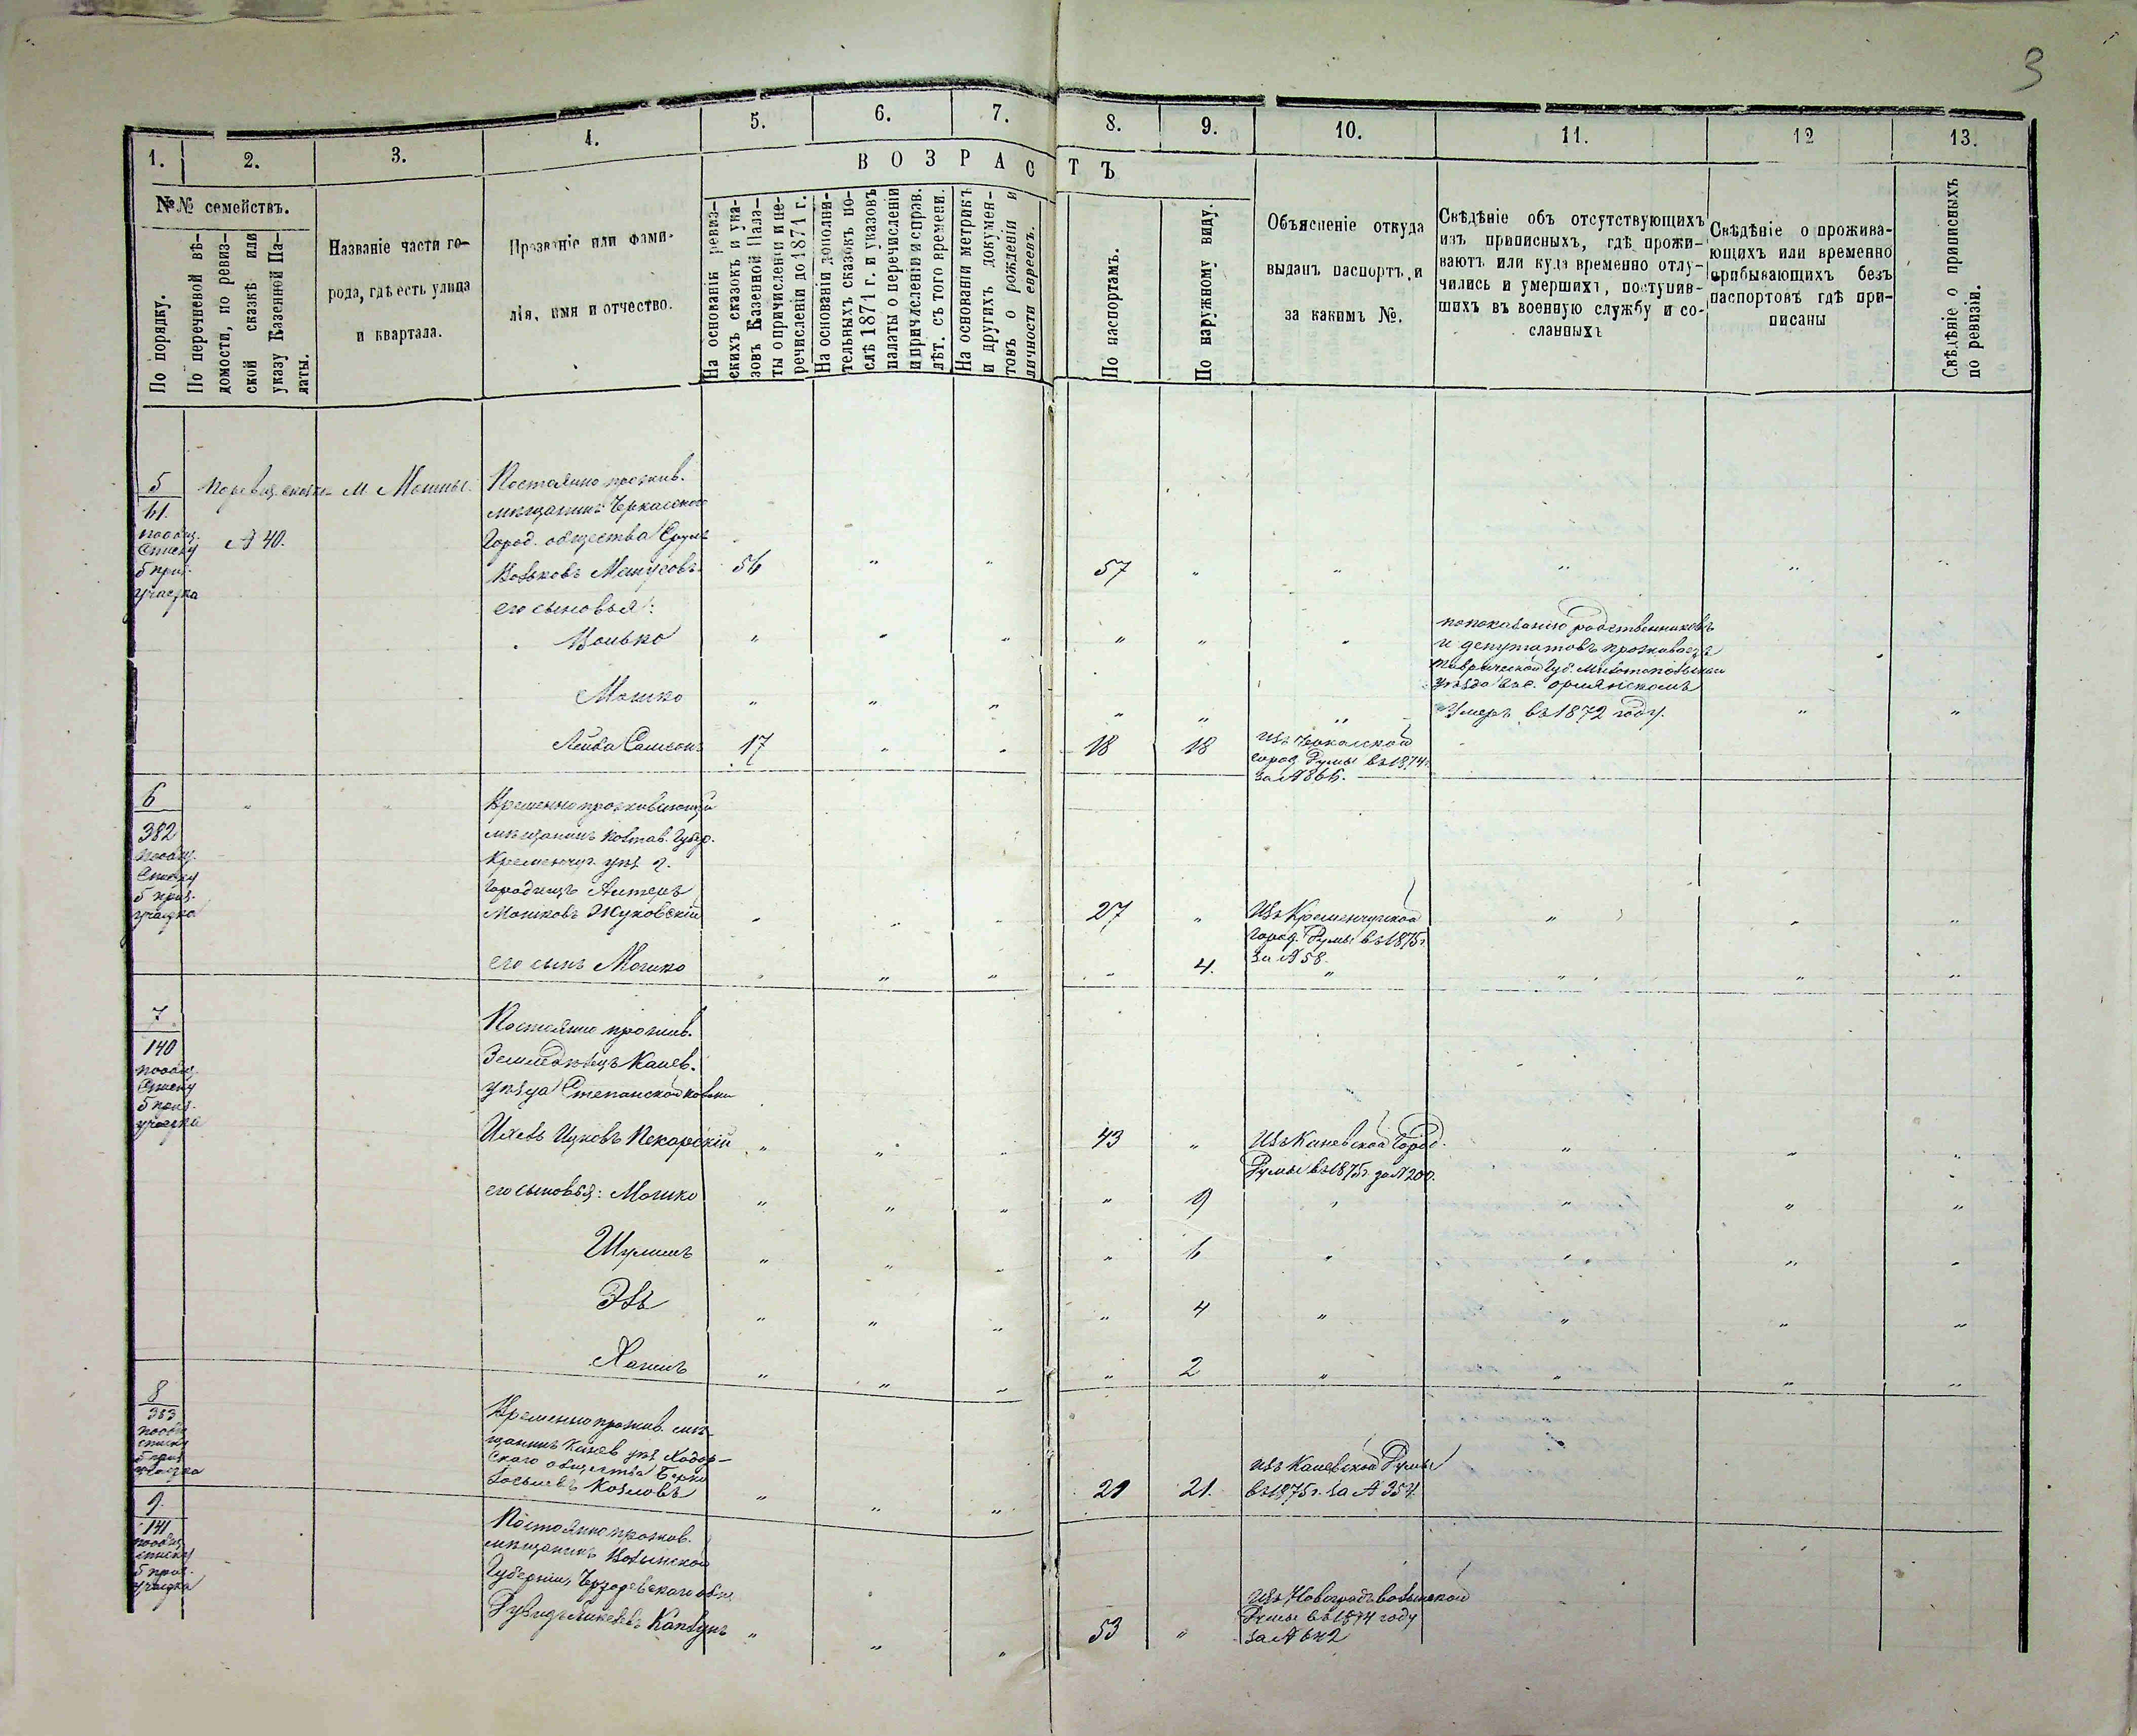 3
1. 2. 3. 4. 5. 6. 7. 8. 9. 10. 11. 12 13.
ВОЗРАСТЪ
№№ семействъ.
По порядку.
По перечневой вѣ-
домости, по ревиз-
ской сказкѣ или
указу Казенной Па-
латы.
Названіе части го-
рода, гдѣ есть улица
и квартала.
Прозваніе или фами-
лія, имя и отчество.
На основаніи ревиз-
скихъ сказокъ и ука-
зовъ Казенной Пала-
ты о причисленіи и пе-
речисленіи до 1871 г.
На основаніи дополни-
тельныхъ сказокъ по-
слѣ 1871 г. и указовъ
палаты о перечисленіи
и причисленіи и справ.
лѣт. съ того времени.
На основаніи метрикъ
и другихъ докумен-
товъ о рожденіи и
личности евреевъ.
По паспортамъ.
По наружному виду.
Объясненіе откуда
выданъ паспортъ и
за какимъ №.
Свѣдѣніе объ отсутствующихъ
изъ приписныхъ, гдѣ прожи-
ваютъ или куда временно отлу-
чились и умершихъ, поступив-
шихъ въ военную службу и со-
сланныхъ
Свѣдѣніе о прожива-
ющихъ или временно
прибывающихъ безъ
паспортовъ гдѣ при-
писаны
Свѣдѣніе о приписныхъ
по ревизіи.
5
61.
по общ.
списку
5 приз.
участка
По ревиз. сказкѣ
№ 40.
М. Мошны.
Постоянно прожив.
мѣщанинъ Черкасского
Город. общества Сруль
Вольковъ 56 " " 57 " " " " "
его сыновья:
Волько " " " " " "
по показанію родственниковъ
и депутатовъ проживаетъ
Таврической Губ. Мелитопольскаго
уѣзда въ с.
Мошко " " " " " " Умеръ въ 1872 году. " "
Лейба Самсонъ 17 " " 18 18
изъ Черкасской
город. Думы въ 1874 г.
за №
6
382
по общ.
списку
5 приз.
участка
" "
Временно проживающій
мѣщанинъ Полтав. Губер.
Кременчуг. уѣз. г.
Городища
Мошковъ Жуковскій " " " 27 " " " "
Изъ Кременчугской
город. Думы въ 1875 г.
за № 58.
его сынъ Мошко " " " " 4. " " " "
7
140
по общ.
списку
5 приз.
участка
Постоянно прожив.
Земледѣлецъ Канев.
уѣзда Степанской колоніи
Ицковъ Пекарскій " " " 43 " " " "
Изъ Каневской Город.
Думы въ 1875 г. за № 200.
его сыновья: Мошко " " " " 9 " " " "
Шулимъ " " " " 6 " " " "
Эль " " " " 4 " " " "
Хаимъ " " " " 2 " " " "
8
383
по общ.
списку
5 приз.
участка
Временно прожив. мѣ-
щанинъ Канев. уѣз. Ходор-
скаго общества Берко
Козловъ " " " 21 21.
изъ Каневской Думы
въ 1875 г. за № 354.
9
141
по общ.
списку
5 приз.
участка
Постоянно прожив.
мѣщанинъ Волынской
Губерніи,
Каплунъ " " " 53 "
изъ Новоградъ волынской
Думы въ 1874 году
за № 642